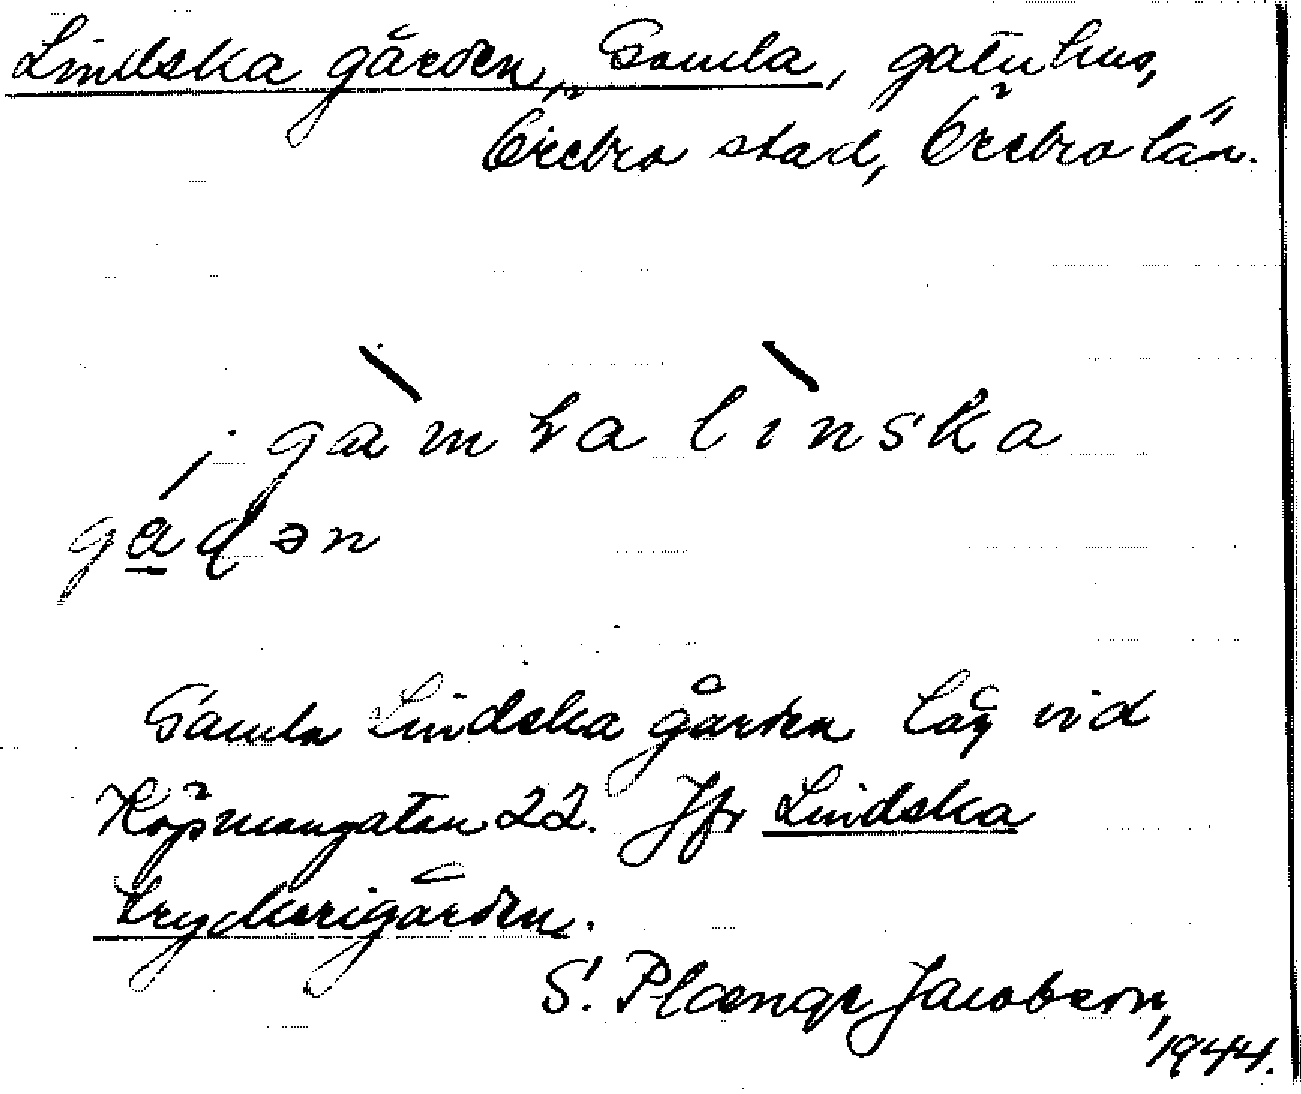 Lindska gården, Gamla, gatuhus,
Örebro stad, Örebro län.
gàmla lìnska
gádən
Gamla Lindska gården låg vid
Köpmangatan 22. Jfr Lindska
tryckerigården.
S. Plænge Jacobson,
1944.